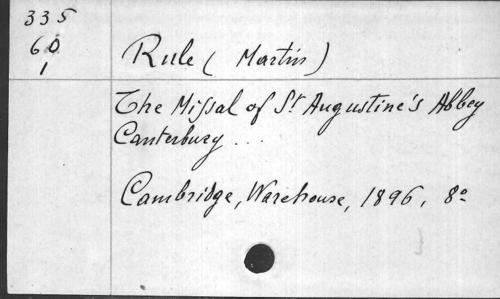 335
60
1
Rule (Martin)
The Missal of St Augustine's Abbey
Canterbury ...
Cambridge, Warehouse, 1896, 8º